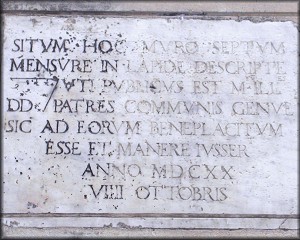 SITVM HOC MVRO SEPTVM
MENSVRE IN LAPIDE DESCRIPTE
VTI PVBLICVS EST M ILL
DD PATRES COMMVNIS GENVE
SIC AD EORVM BENEPLACITVM
ESSE ET MANERE IVSSER
ANNO MDCXX
VIIII OTTOBRIS